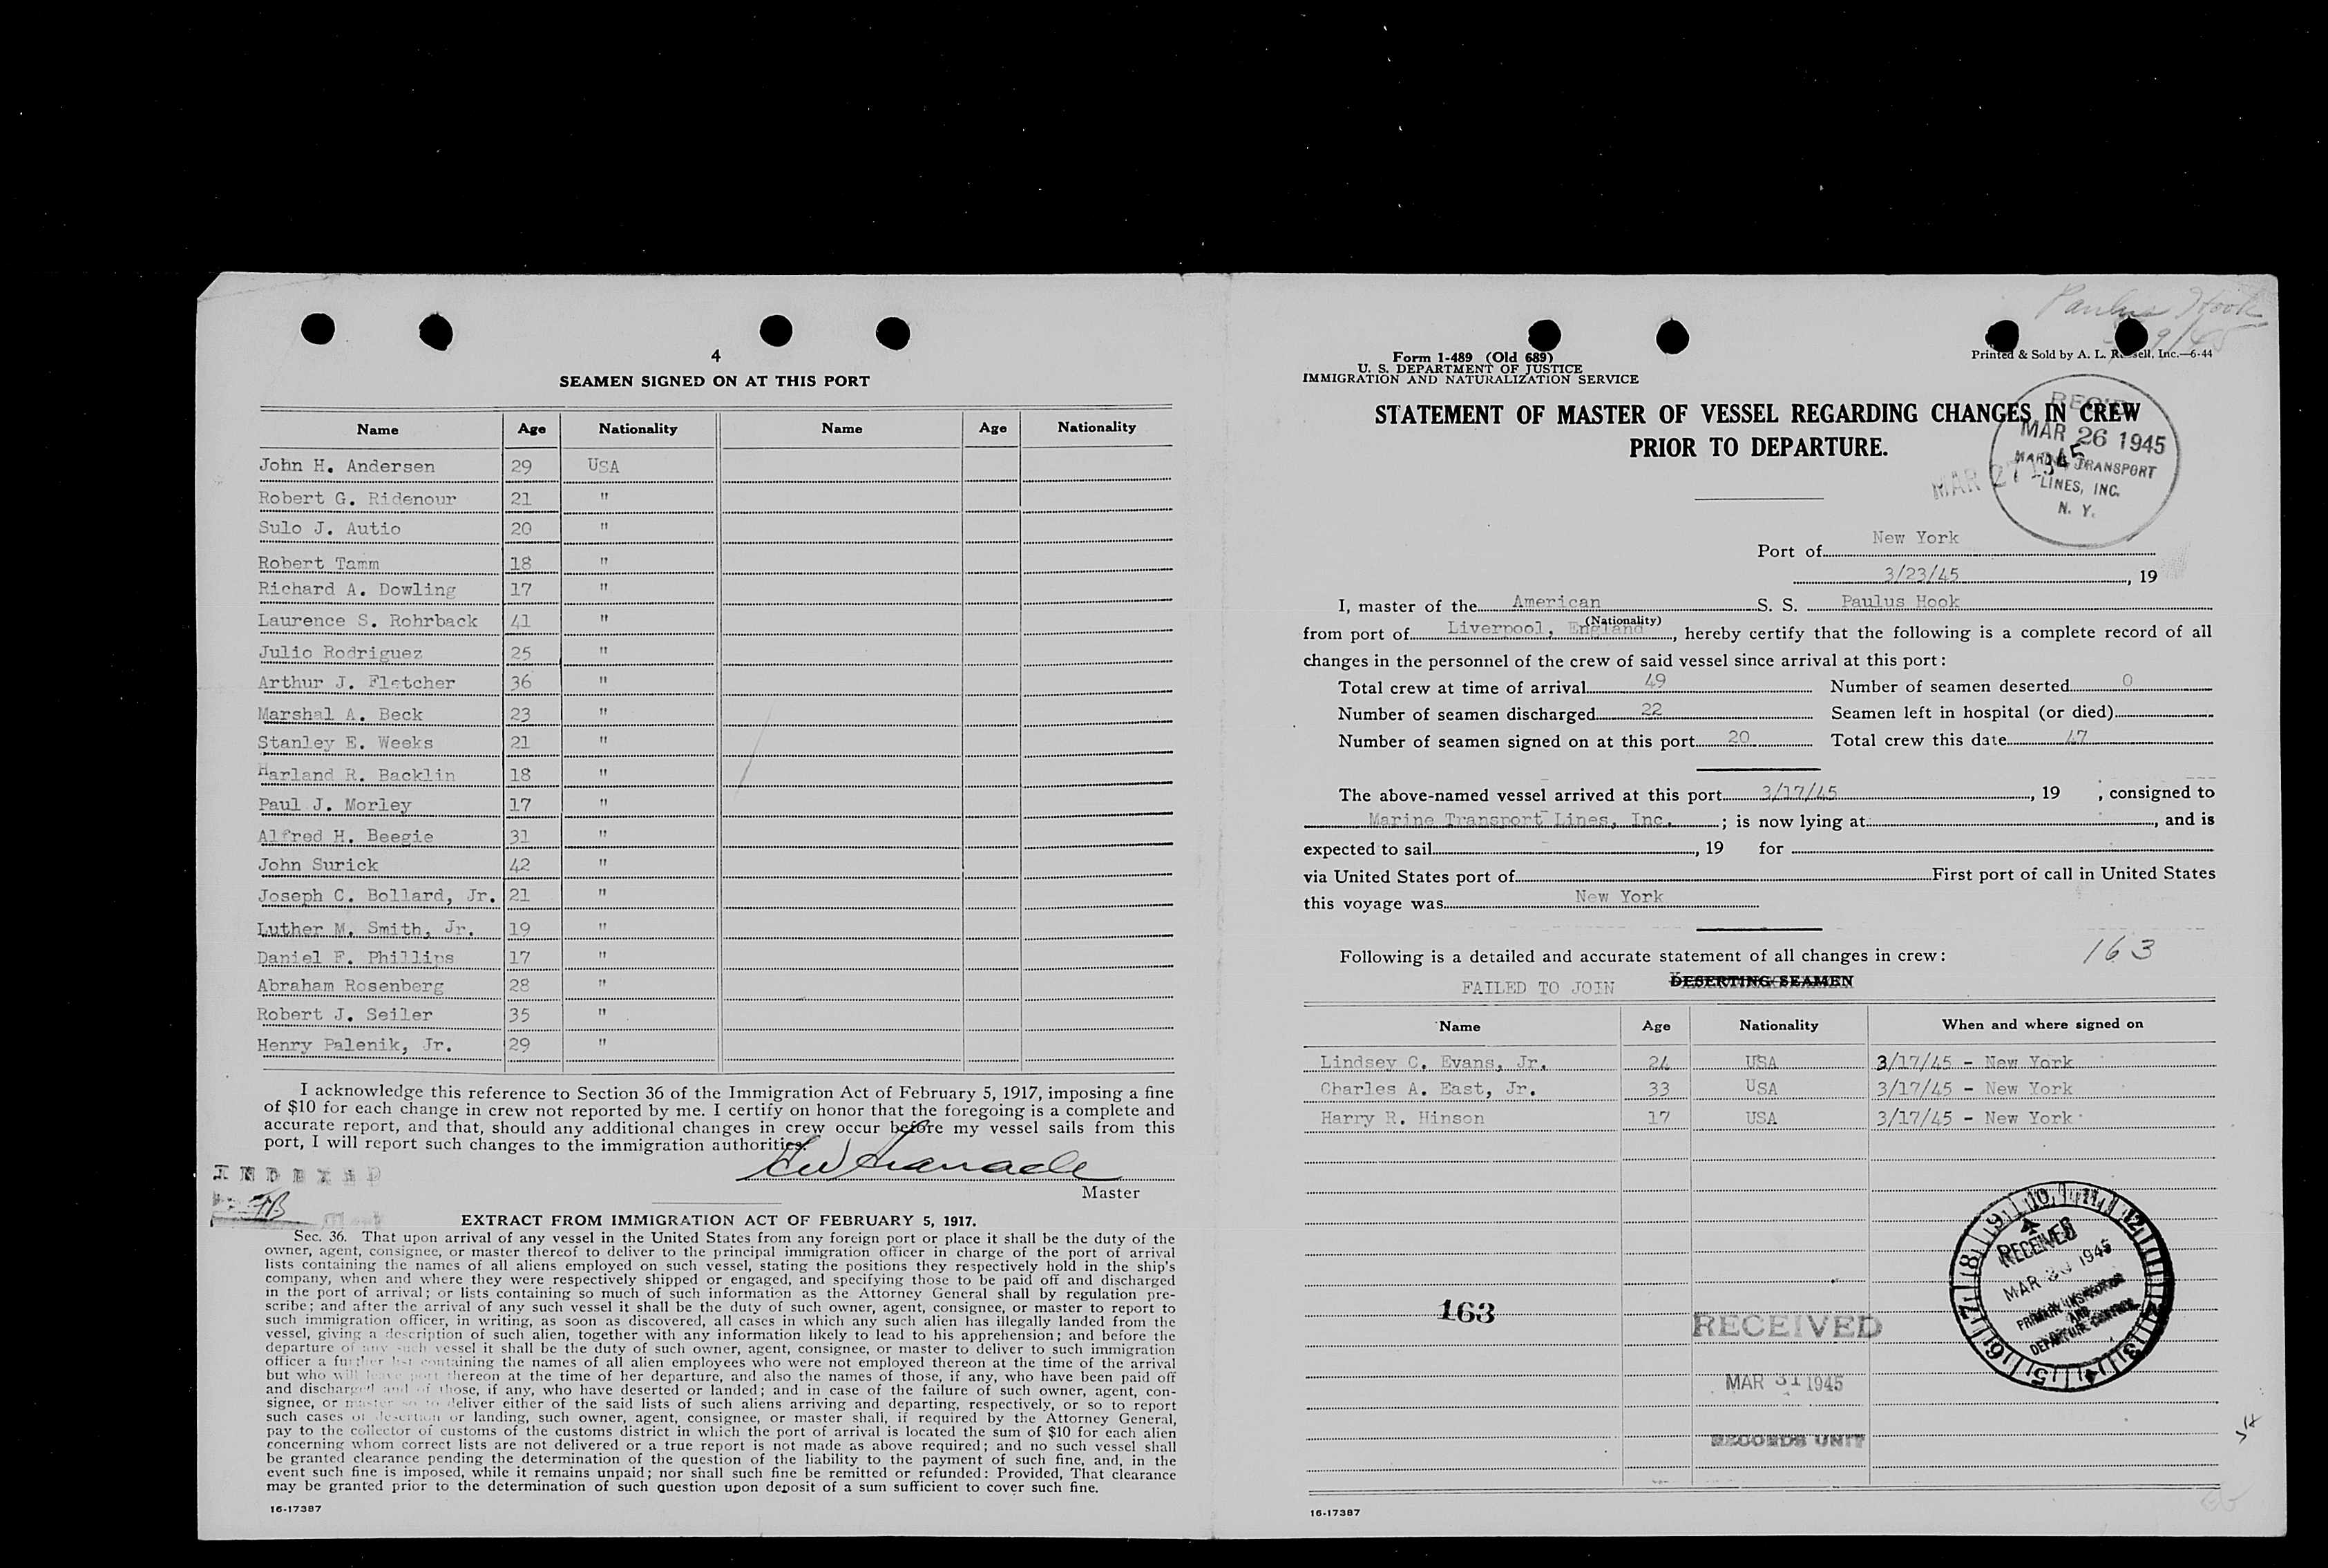 4
SEAMEN SIGNED ON AT THIS PORT
Name Age Nationality Name Age Nationality
John H. Andersen 29 USA
Robert G. Ridenour 21 "
Sulo J. Autio 20 "
Robert Tamm 18 "
Richard A. Dowling 17 "
Laurence S. Rohrback 41 "
Julio Rodriguez 25 "
Arthur J. Fletcher 36 "
Marshal A. Beck 23 "
Stanley E. Weeks 21 "
Harland R. Backlin 18 "
Paul J. Morley 17 "
Alfred H. Beegie 31 "
John Surick 42 "
Joseph C. Bollard, Jr. 21 "
Luther M. Smith, Jr. 19 "
Daniel F. Phillips 17 "
Abraham Rosenberg 28 "
Robert J. Seiler 35 "
Henry Palenik, Jr. 29 "
I acknowledge this reference to Section 36 of the Immigration Act of February 5, 1917, imposing a fine
of $10 for each change in crew not reported by me. I certify on honor that the foregoing is a complete and
accurate report, and that, should any additional changes in crew occur before my vessel sails from this
port, I will report such changes to the immigration authorities.
Master
INDEXED
EXTRACT FROM IMMIGRATION ACT OF FEBRUARY 5, 1917.
Sec. 36. That upon arrival of any vessel in the United States from any foreign port or place it shall be the duty of the
owner, agent, consignee, or master thereof to deliver to the principal immigration officer in charge of the port of arrival
lists containing the names of all aliens employed on such vessel, stating the positions they respectively hold in the ship's
company, when and where they were respectively shipped or engaged, and specifying those to be paid off and discharged
in the port of arrival; or lists containing so much of such information as the Attorney General shall by regulation pre-
scribe; and after the arrival of any such vessel it shall be the duty of such owner, agent, consignee, or master to report to
such immigration officer, in writing, as soon as discovered, all cases in which any such alien has illegally landed from the
vessel, giving a description of such alien, together with any information likely to lead to his apprehension; and before the
departure of any such vessel it shall be the duty of such owner, agent, consignee, or master to deliver to such immigration
officer a further list containing the names of all alien employees who were not employed thereon at the time of the arrival
but who will leave port thereon at the time of her departure, and also the names of those, if any, who have been paid off
and discharged and of those, if any, who have deserted or landed; and in case of the failure of such owner, agent, con-
signee, or master so to deliver either of the said lists of such aliens arriving and departing, respectively, or so to report
such cases of desertion or landing, such owner, agent, consignee, or master shall, if required by the Attorney General,
pay to the collector of customs of the customs district in which the port of arrival is located the sum of $10 for each alien
concerning whom correct lists are not delivered or a true report is not made as above required; and no such vessel shall
be granted clearance pending the determination of the question of the liability to the payment of such fine, and, in the
event such fine is imposed, while it remains unpaid; nor shall such fine be remitted or refunded: Provided, That clearance
may be granted prior to the determination of such question upon deposit of a sum sufficient to cover such fine.
16-17387
Paulus Hook
Form 1-489 (Old 689)
U. S. DEPARTMENT OF JUSTICE
IMMIGRATION AND NATURALIZATION SERVICE
Printed & Sold by A. L. Russell, Inc.—6-44
STATEMENT OF MASTER OF VESSEL REGARDING CHANGES IN CREW
PRIOR TO DEPARTURE.
REC'D
MAR 26 1945
MARINE TRANSPORT
LINES, INC.
N. Y.
MAR 27
Port of New York
3/23/45, 19
I, master of the American S. S. Paulus Hook
(Nationality)
from port of Liverpool, England, hereby certify that the following is a complete record of all
changes in the personnel of the crew of said vessel since arrival at this port:
Total crew at time of arrival 49 Number of seamen deserted 0
Number of seamen discharged 22 Seamen left in hospital (or died)
Number of seamen signed on at this port 20 Total crew this date 47
The above-named vessel arrived at this port 3/17/45, 19 , consigned to
Marine Transport Lines, Inc. ; is now lying at , and is
expected to sail , 19 for
via United States port of First port of call in United States
this voyage was New York
Following is a detailed and accurate statement of all changes in crew: 163
FAILED TO JOIN DESERTING SEAMEN
Name Age Nationality When and where signed on
Lindsey C. Evans, Jr. 24 USA 3/17/45 - New York
Charles A. East, Jr. 33 USA 3/17/45 - New York
Harry R. Hinson 17 USA 3/17/45 - New York
163
RECEIVED
MAR 31 1945
RECORDS UNIT
RECEIVED
MAR 30 1945
PRIMARY INSPECTION
AND
DEPARTURE CONTROL
16-17387